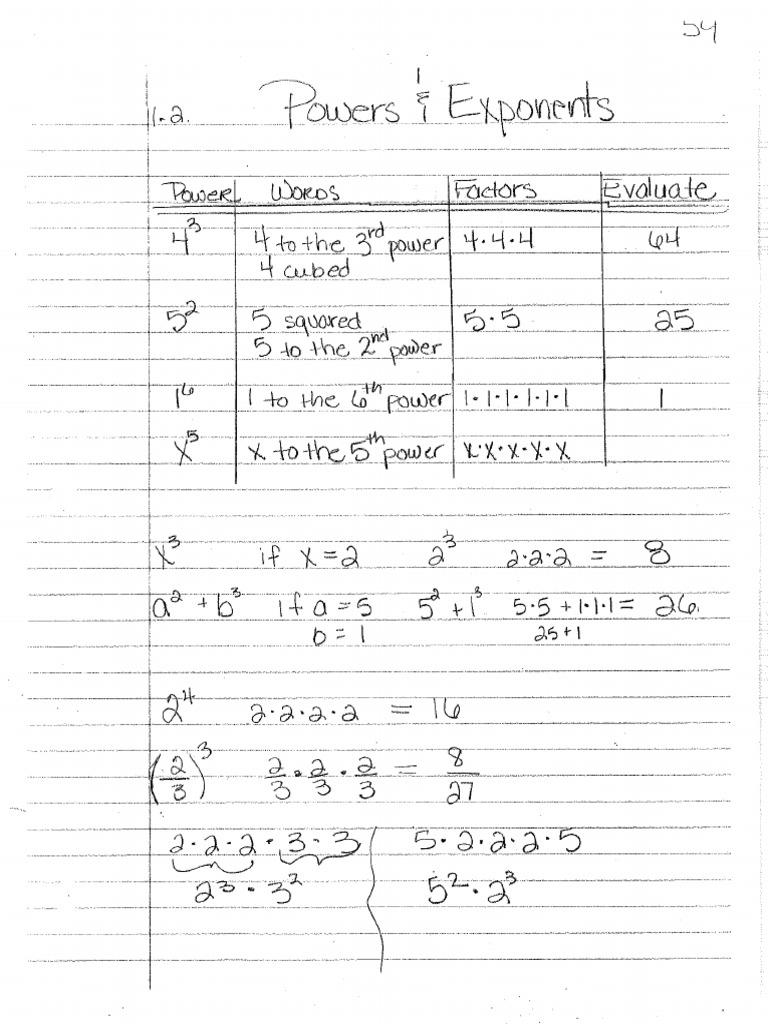 54
1.2. Powers & Exponents
Power Words Factors Evaluate
4³ 4 to the 3rd power 4·4·4 64
4 cubed
5² 5 squared 5·5 25
5 to the 2nd power
1⁶ 1 to the 6th power 1·1·1·1·1·1 1
x⁵ x to the 5th power x·x·x·x·x
x³ if x=2 2³ 2·2·2 = 8
a² + b³ if a=5 5² + 1³ 5·5+1·1·1= 26.
b=1 25+1
2⁴ 2·2·2·2 = 16
(2/3)³ 2/3 · 2/3 · 2/3 = 8/27
2·2·2·3·3 5·2·2·2·5
2³·3² 5²·2³